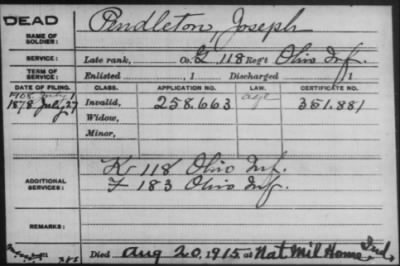 DEAD
NAME OF SOLDIER: Pendleton, Joseph
SERVICE: Late rank, Co. G, 118 Reg't Ohio Inf.
TERM OF SERVICE: Enlisted , 1 Discharged , 1
DATE OF FILING. CLASS. APPLICATION NO. LAW. CERTIFICATE NO.
1908 July 1 age
1878 July 27 Invalid, 258.663 351.881
Widow,
Minor,
ADDITIONAL SERVICES: K 118 Ohio Inf.
F 183 Ohio Inf.
REMARKS:
Died Aug 20, 1915 at Nat Mil Home, Ind.